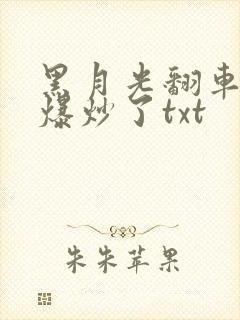 黑月光翻车
爆炒了txt
朱朱苹果